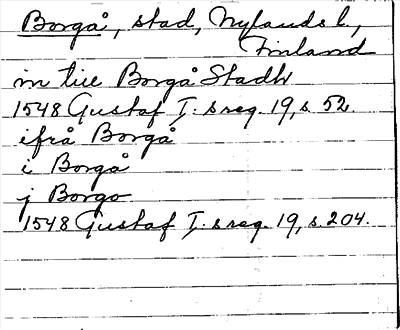 Borgå, stad, Nylands l.,
Finland
in till Borgå Stadh
1548 Gustaf I:s reg. 19, s. 52.
ifrå Borgå
i Borgå
j Borgo
1548 Gustaf I:s reg. 19, s. 204.